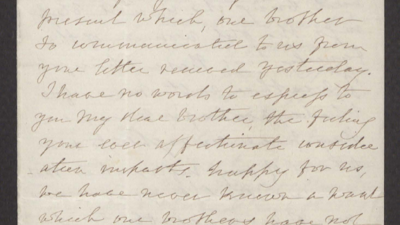 present which, one brother
so communicated to us from
your letter received yesterday.
I have no words to express to
you my dear Brother, the feeling
your ever affectionate consider
ation imparts. happy for us,
we have never known a want
which one brothers have not